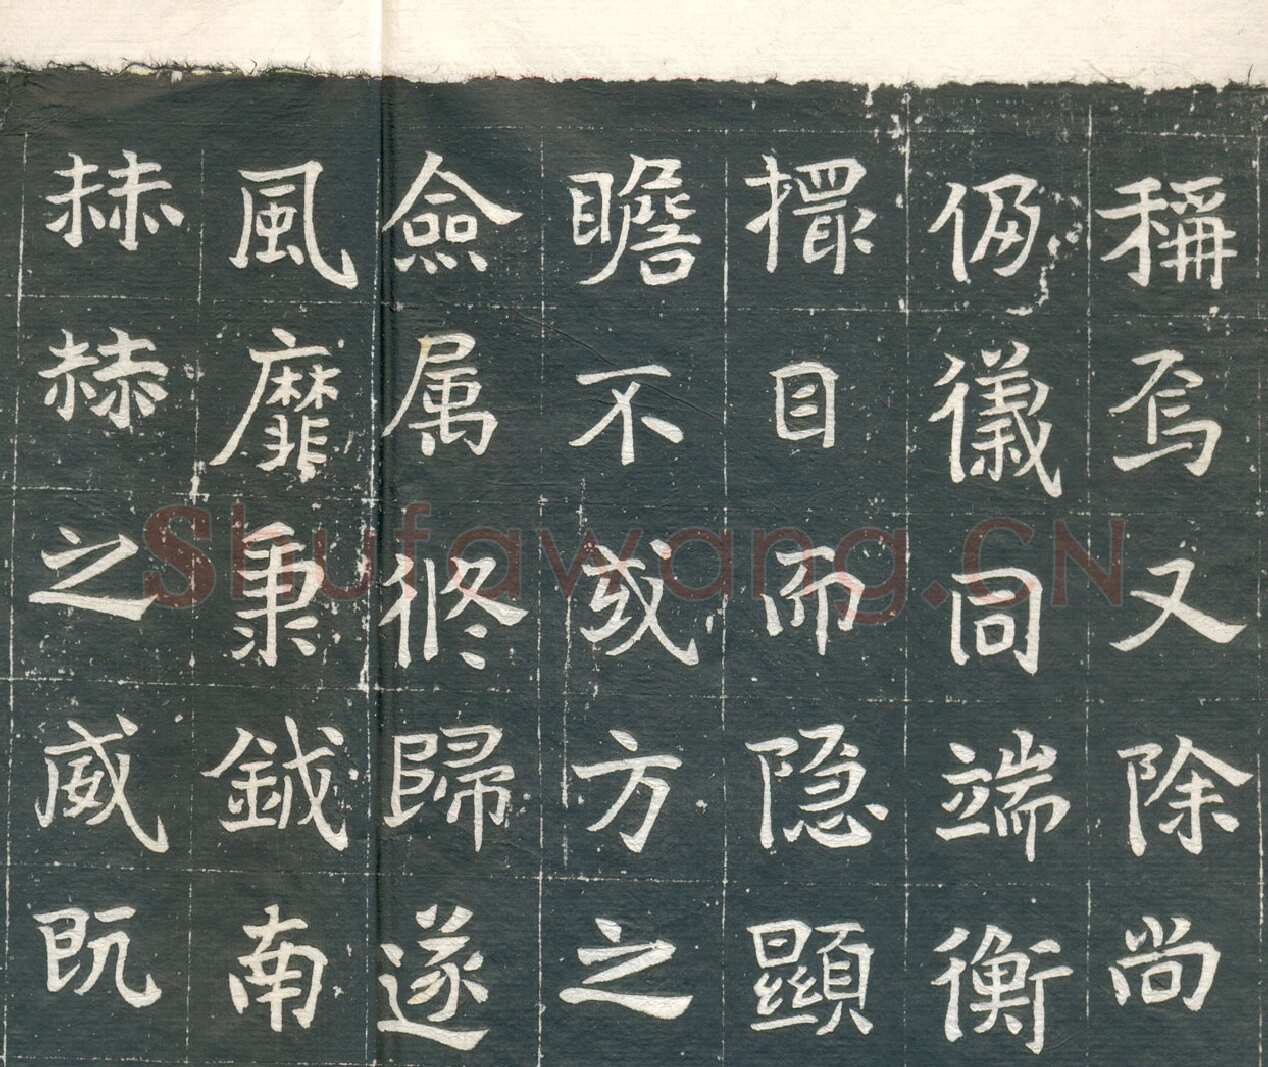 稱焉又除尚
仍儀同端衡
撮目而隐顯
瞻不或方之
僉属修歸遂
風靡秉鉞南
赫赫之威既
Shufawang.CN